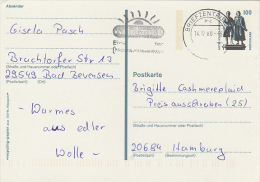 Absender
Gisela Pasch
Bruchtorfer Str 13
29549 Bad Bevensen
(Straße und Hausnummer oder Postfach)
(Postleitzahl) (Ort)
- Warmes
aus edler
Wolle -
BRIEFZENTR
100
Postkarte
Brigitte Cashmereplaid
Preisausschreiben (25)
(Straße und Hausnummer oder Postfach)
20684 Hamburg
(Postleitzahl) (Bestimmungsort)